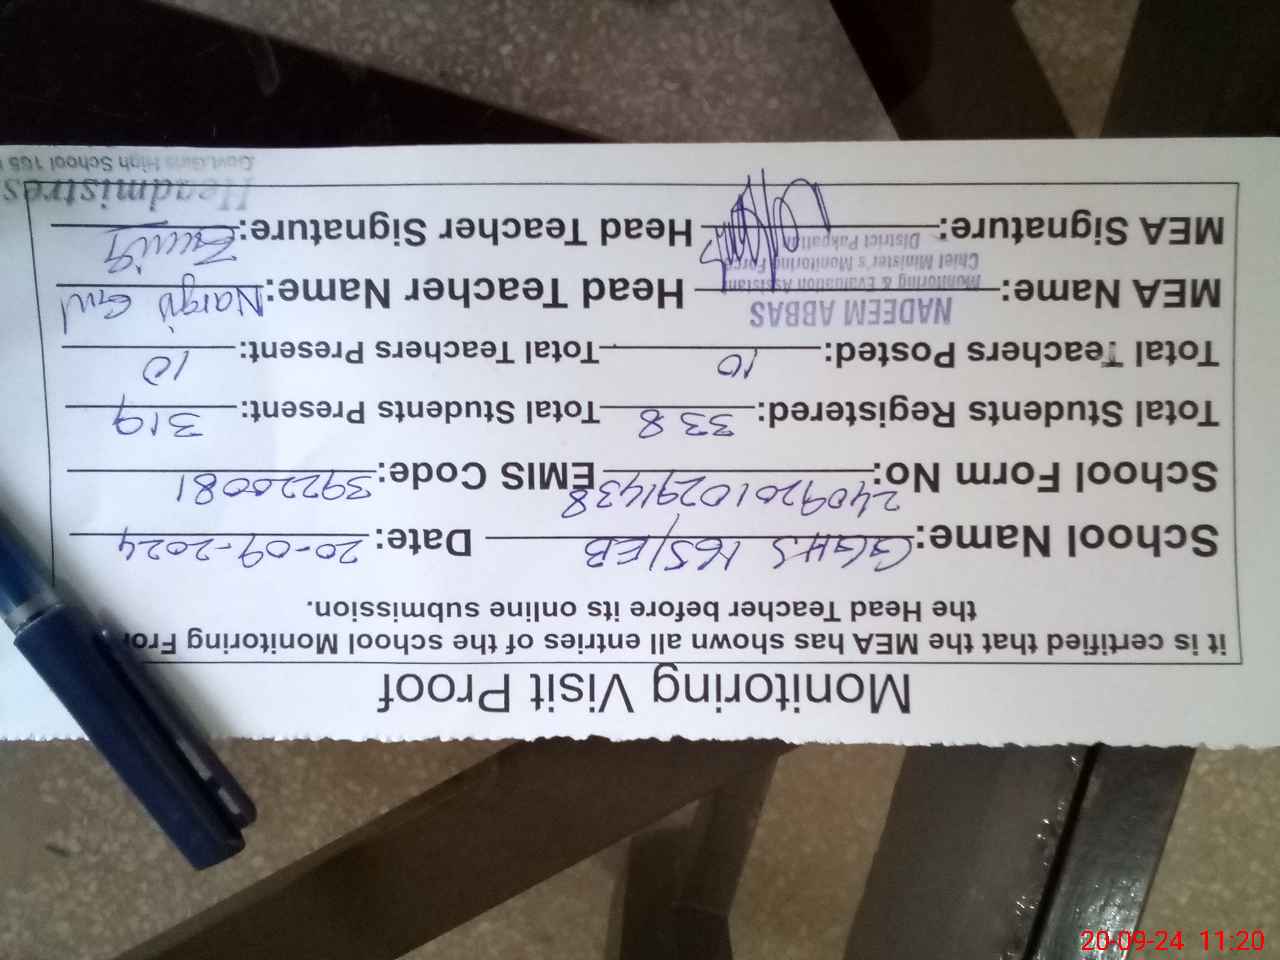 Monitoring Visit Proof
it is certified that the MEA has shown all entries of the school Monitoring Fro
the Head Teacher before its online submission.
School Name: GGHS 165/EB Date: 20-09-2024
School Form No: 24092010291438 EMIS Code: 39220081
Total Students Registered: 338 Total Students Present: 319
Total Teachers Posted: 10 Total Teachers Present: 10
NADEEM ABBAS
MEA Name: Head Teacher Name: Nargis Gul
Monitoring & Evaluation Assistant
Chief Minister's Monitoring Force
District Pakpattan
MEA Signature: Head Teacher Signature:
Headmistres
Govt.Girls High School 165
20-09-24 11:20